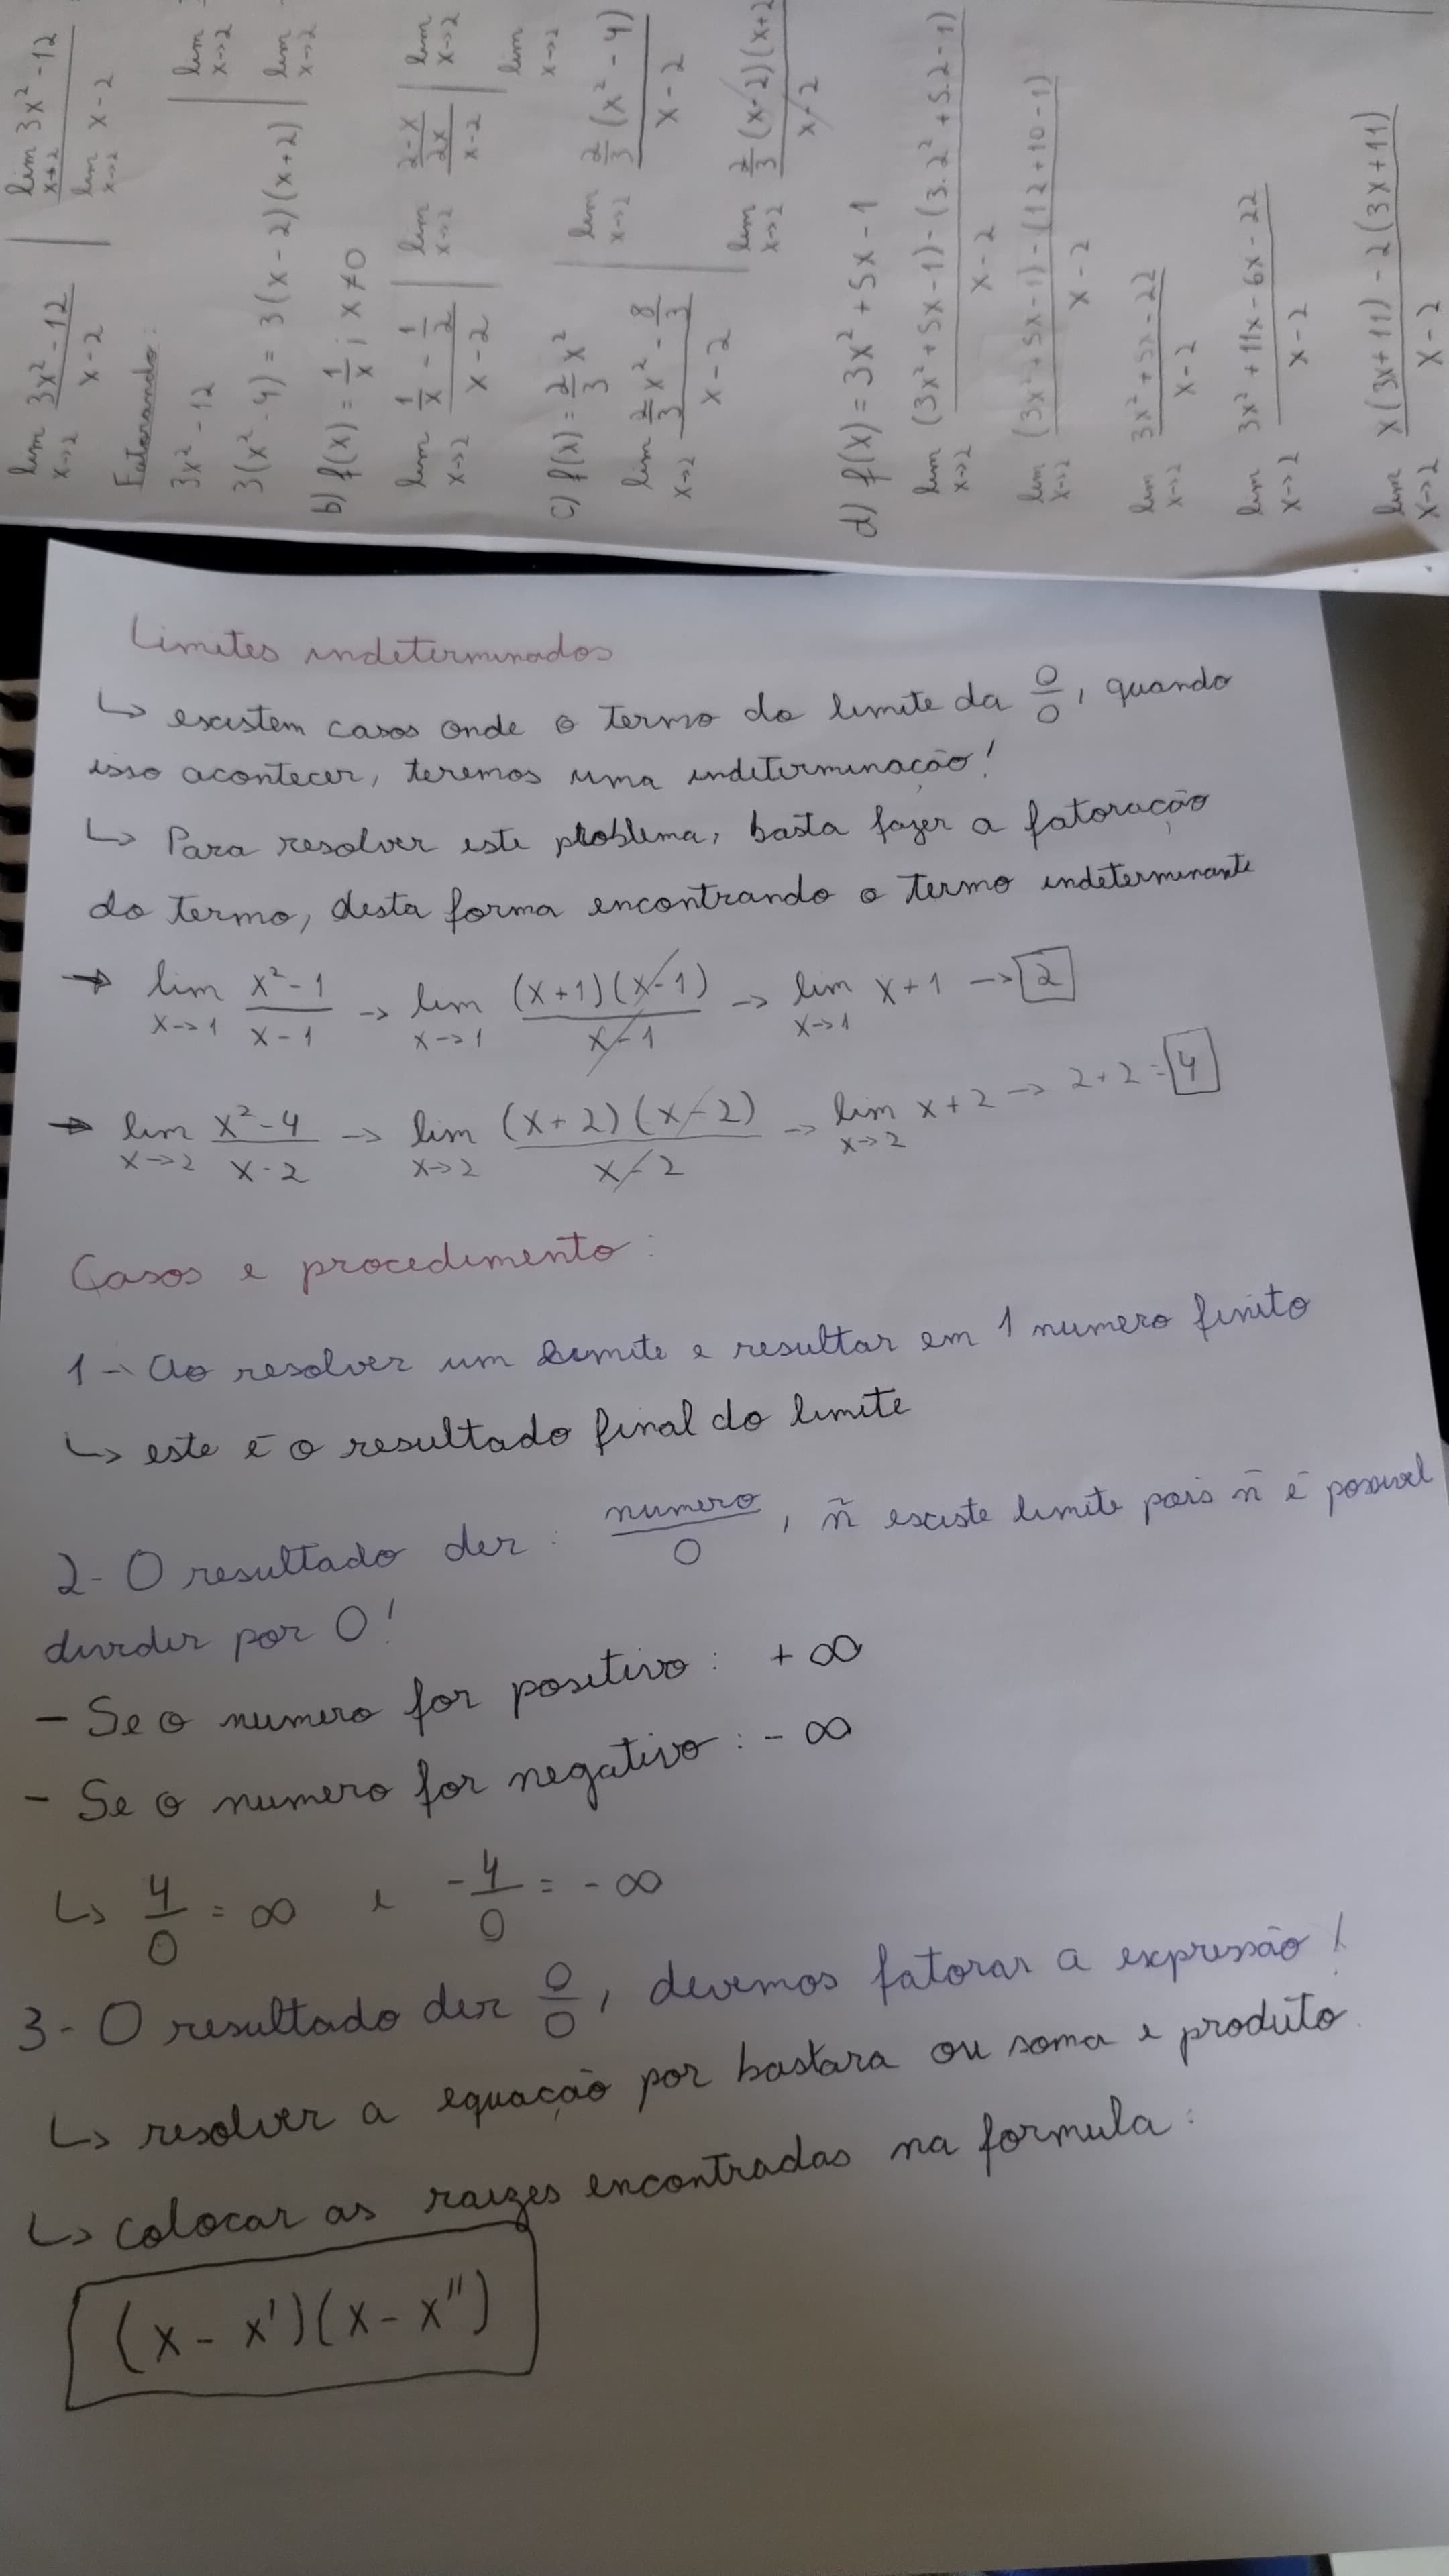 lim 3x² - 12 / x - 2 | lim 3x² - 12 / lim x - 2
x→2 x→2 x→2
Fatorando:
3x² - 12 | lim
x→2
3(x² - 4) = 3(x - 2)(x + 2) | lim
x→2
b) f(x) = 1/x ; x ≠ 0
lim (1/x - 1/2) / x - 2 | lim (2 - x / 2x) / x - 2 | lim
x→2 x→2 x→2
lim
x→2
c) f(x) = 2/3 x² | lim 2/3 (x² - 4) / x - 2
x→2
lim (2/3 x² - 8/3) / x - 2 | lim 2/3 (x - 2)(x + 2 / x - 2
x→2 x→2
d) f(x) = 3x² + 5x - 1
lim (3x² + 5x - 1) - (3.2² + 5.2 - 1) / x - 2
x→2
lim (3x² + 5x - 1) - (12 + 10 - 1) / x - 2
x→2
lim 3x² + 5x - 22 / x - 2
x→2
lim 3x² + 11x - 6x - 22 / x - 2
x→2
lim x(3x + 11) - 2(3x + 11) / x - 2
x→2
Limites indeterminados
↳ existem casos onde o termo do limite da 0/0, quando
isso acontecer, teremos uma indeterminação!
↳ Para resolver este problema, basta fazer a fatoração
do termo, desta forma encontrando o termo indeterminante
→ lim x² - 1 / x - 1 → lim (x + 1)(x - 1) / x - 1 → lim x + 1 → 2
x→1 x→1 x→1
→ lim x² - 4 / x - 2 → lim (x + 2)(x - 2) / x - 2 → lim x + 2 → 2 + 2 = 4
x→2 x→2 x→2
Casos e procedimento:
1 - Ao resolver um limite e resultar em 1 numero finito
↳ este é o resultado final do limite
2 - O resultado der: numero/0, ñ existe limite pois ñ é possivel
dividir por 0!
- Se o numero for positivo: + ∞
- Se o numero for negativo: - ∞
↳ 4/0 = ∞ e -4/0 = - ∞
3 - O resultado der 0/0, devemos fatorar a expressão!
↳ resolver a equação por bastara ou soma e produto
↳ colocar as raizes encontradas na formula:
(x - x')(x - x")